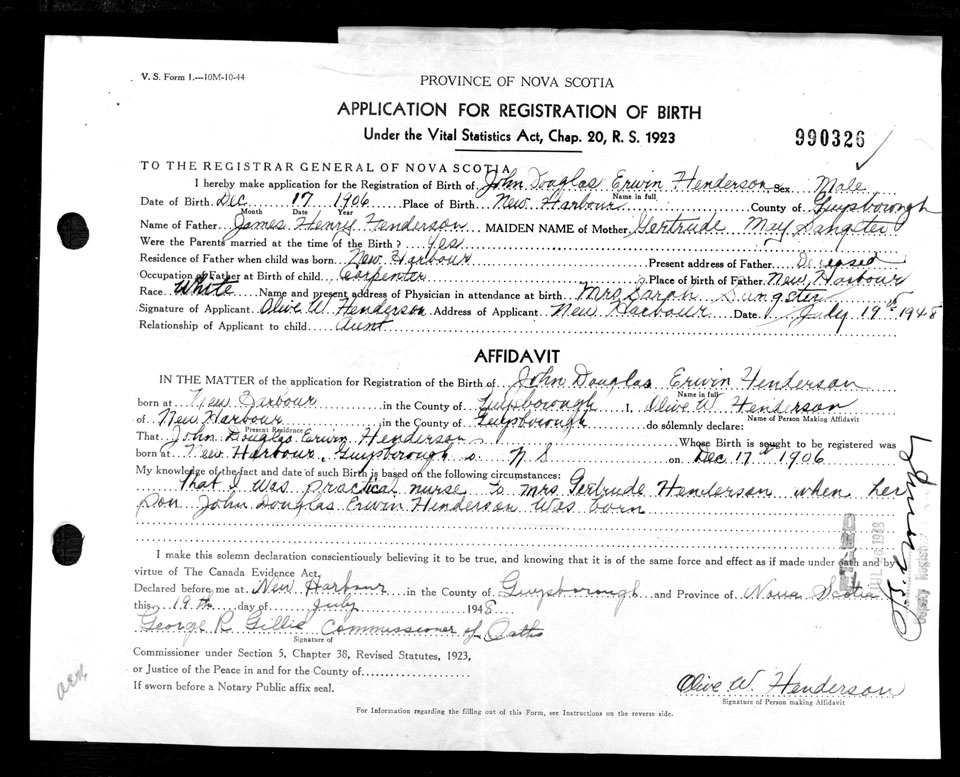 V. S. Form 1.---10M-10-44
PROVINCE OF NOVA SCOTIA
APPLICATION FOR REGISTRATION OF BIRTH
Under the Vital Statistics Act, Chap. 20, R. S. 1923
990326
TO THE REGISTRAR GENERAL OF NOVA SCOTIA
I hereby make application for the Registration of Birth of John Douglas Erwin Henderson Sex Male
Name in full
Date of Birth Dec 17 1906 Place of Birth New Harbour County of Guysborough
Month Date Year
Name of Father James Henry Henderson MAIDEN NAME of Mother Gertrude May Sangster
Were the Parents married at the time of the Birth? Yes
Residence of Father when child was born New Harbour Present address of Father Deceased
Occupation of Father at Birth of child Carpenter Place of birth of Father New Harbour
Race White Name and present address of Physician in attendance at birth Mrs Sarah Sangster
Signature of Applicant Olive W Henderson Address of Applicant New Harbour Date July 19 1948
Relationship of Applicant to child Aunt
AFFIDAVIT
IN THE MATTER of the application for Registration of the Birth of John Douglas Erwin Henderson
Name in full
born at New Harbour in the County of Guysborough I, Olive W Henderson
Present Residence Name of Person Making Affidavit
of New Harbour in the County of Guysborough do solemnly declare:
That John Douglas Erwin Henderson Whose Birth is sought to be registered was
born at New Harbour, Guysborough Co. N S on Dec 17 1906
My knowledge of the fact and date of such Birth is based on the following circumstances:
That I was practical nurse to Mrs Gertrude Henderson when her
son John Douglas Erwin Henderson was born
I make this solemn declaration conscientiously believing it to be true, and knowing that it is of the same force and effect as if made under oath and by
virtue of The Canada Evidence Act.
Declared before me at New Harbour in the County of Guysborough and Province of Nova Scotia
this 19th day of July 1948
George R Gillie Commissioner of Oaths
Signature of
Commissioner under Section 5, Chapter 38, Revised Statutes, 1923,
or Justice of the Peace in and for the County of
If sworn before a Notary Public affix seal.
Olive W. Henderson
Signature of Person making Affidavit
For Information regarding the filling out of this Form, see Instructions on the reverse side.